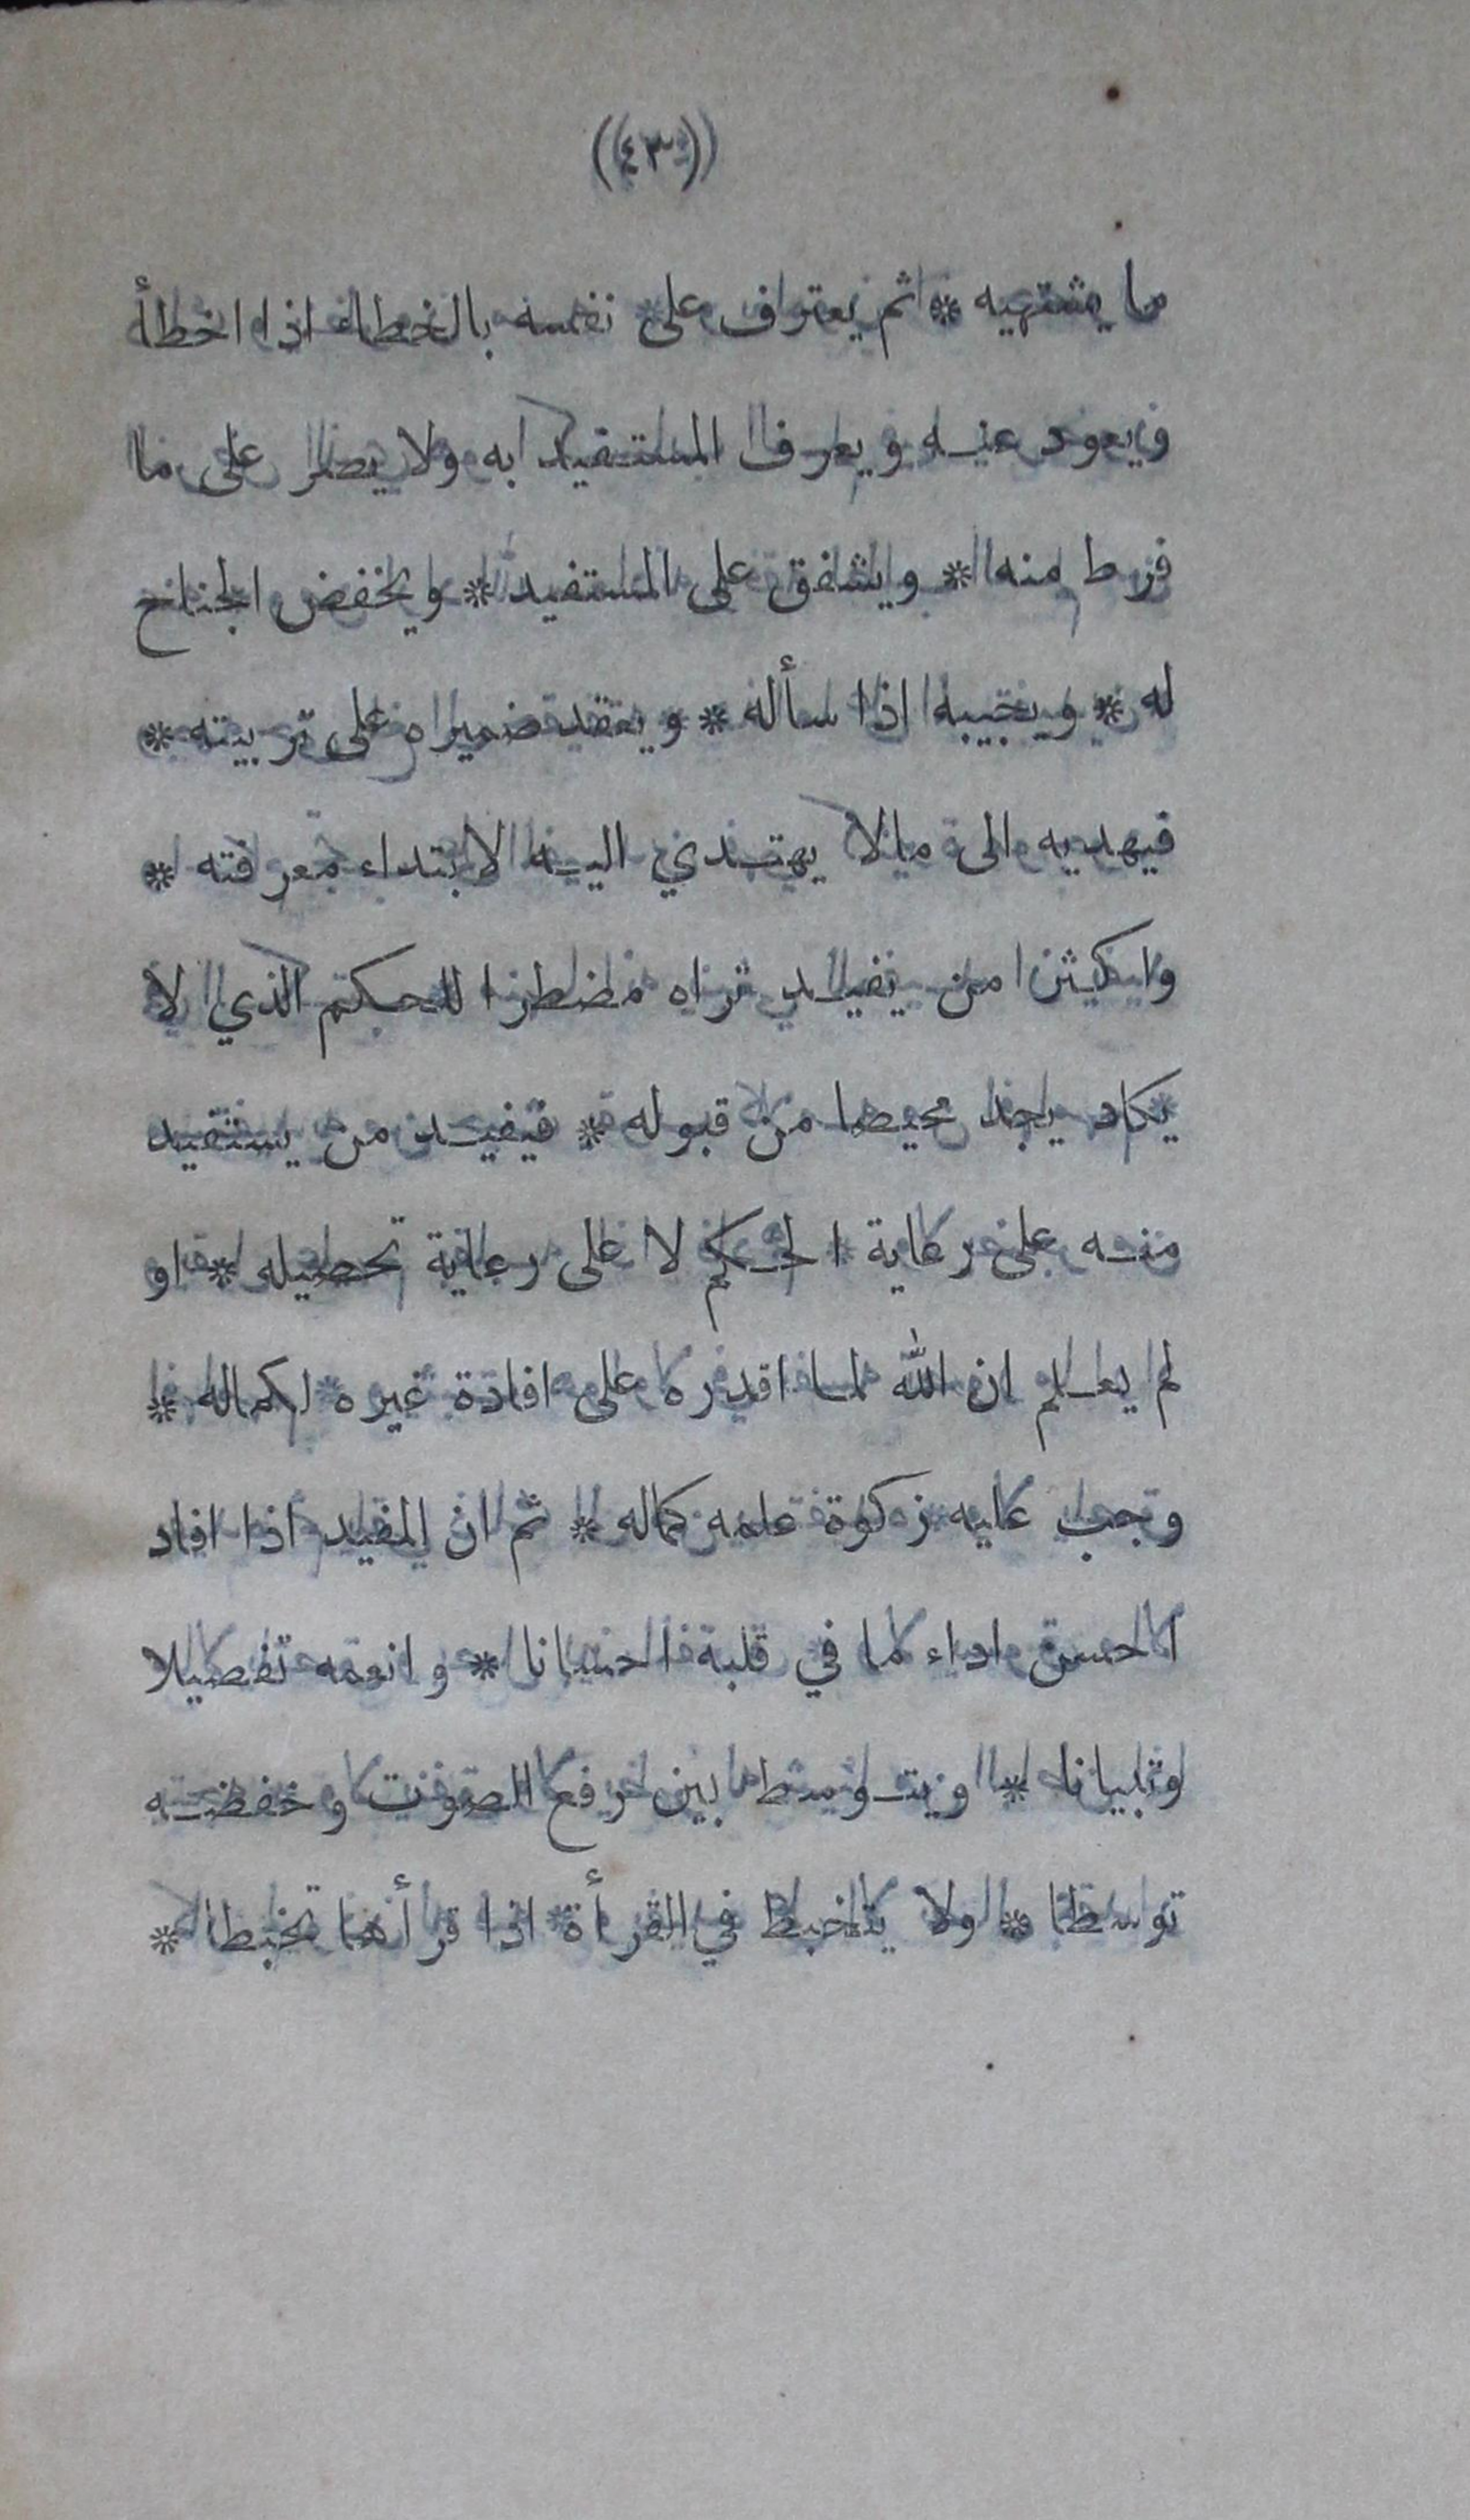 ((٤٣))
ما يشتهيه * ثم يعترف على نفسه بالخطاء اذا اخطأ
ويعود عنه ويعرف المستفيد به ولا يصر على ما
فرط منه * ويشفق على المستفيد * ويخفض الجناح
له * ويجيبه اذا سأله * ويعقد ضميره على تربيته *
فيهديه الى مالا يهتدي اليه لابتداء معرفته *
واكثر من يفيد تراه مضطرا للحكم الذي لا
يكاد يجد محيصا من قبوله * فيفيد من يستفيد
منه على رعاية الحكم لا على رعاية تحصيله * او
لم يعلم ان الله لما اقدره على افادة غيره لكماله *
وجب عليه زكوة علمه كماله * ثم ان المفيد اذا افاد
احسن اداء ما في قلبه احسانا * وانعمه تفصيلا
وتبيانا * ويتوسط بين رفع الصوت وخفضه
توسطا * ولا يتخبط في القرأة اذا قرأها تخبطا *